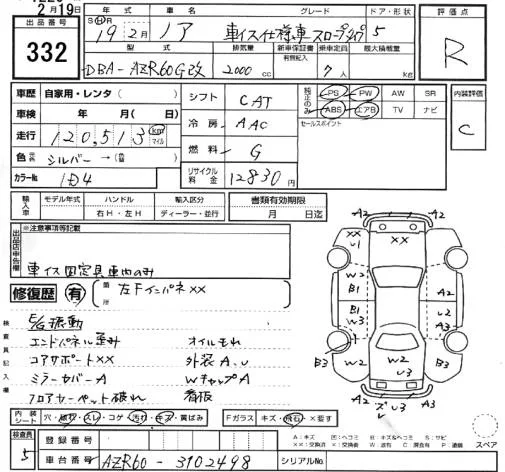 2月19日
出品番号 332
年式 車名 グレード ドア・形状 評価点
SH R 19年 2月 ノア 車イス仕様車スロープタイプ 5 R
型式 排気量 新車保証書 有無記入 乗車定員 最大積載量
DBA-AZR60G改 2000 cc 7人 kg
車歴 自家用・レンタ( ) シフト CAT 純正のみ PS PW AW SR 内装評価
車検 年 月( ) 冷房 AAC ABS エアB TV ナビ C
走行 120,513 km マイル セールスポイント
色 シルバー → 燃料 G
カラーNo. 1D4 リサイクル料金 12830円
輸入車 モデル年式 ハンドル 輸入区分 書類有効期限
右H・左H ディーラー・並行 月 日迄
出品店申告欄 ※注意事項等記載
車イス固定具車内のみ
修復歴 有 箇所 左Fインパネ××
検査員記入欄
E/G振動
エンドパネル歪み オイルもれ
コアサポート×× 外装A、U
ミラーカバーA WキャップA
フロアカーペット破れ 看板
A2 A2
×× U1 ××
W2 B1
A2
B1 W3 U2 A2
B3 W2 U3 B3
A2 A2
内装シート 穴・破れ・スレ・コゲ・汚れ・キズ・黄ばみ Fガラス キズ・飛石・×要す
検査員 5 登録番号
車台番号 AZR60-3102498 シリアルNo.
A:キズ U:凹ヘコミ B:キズ&ヘコミ S:サビ
スペア